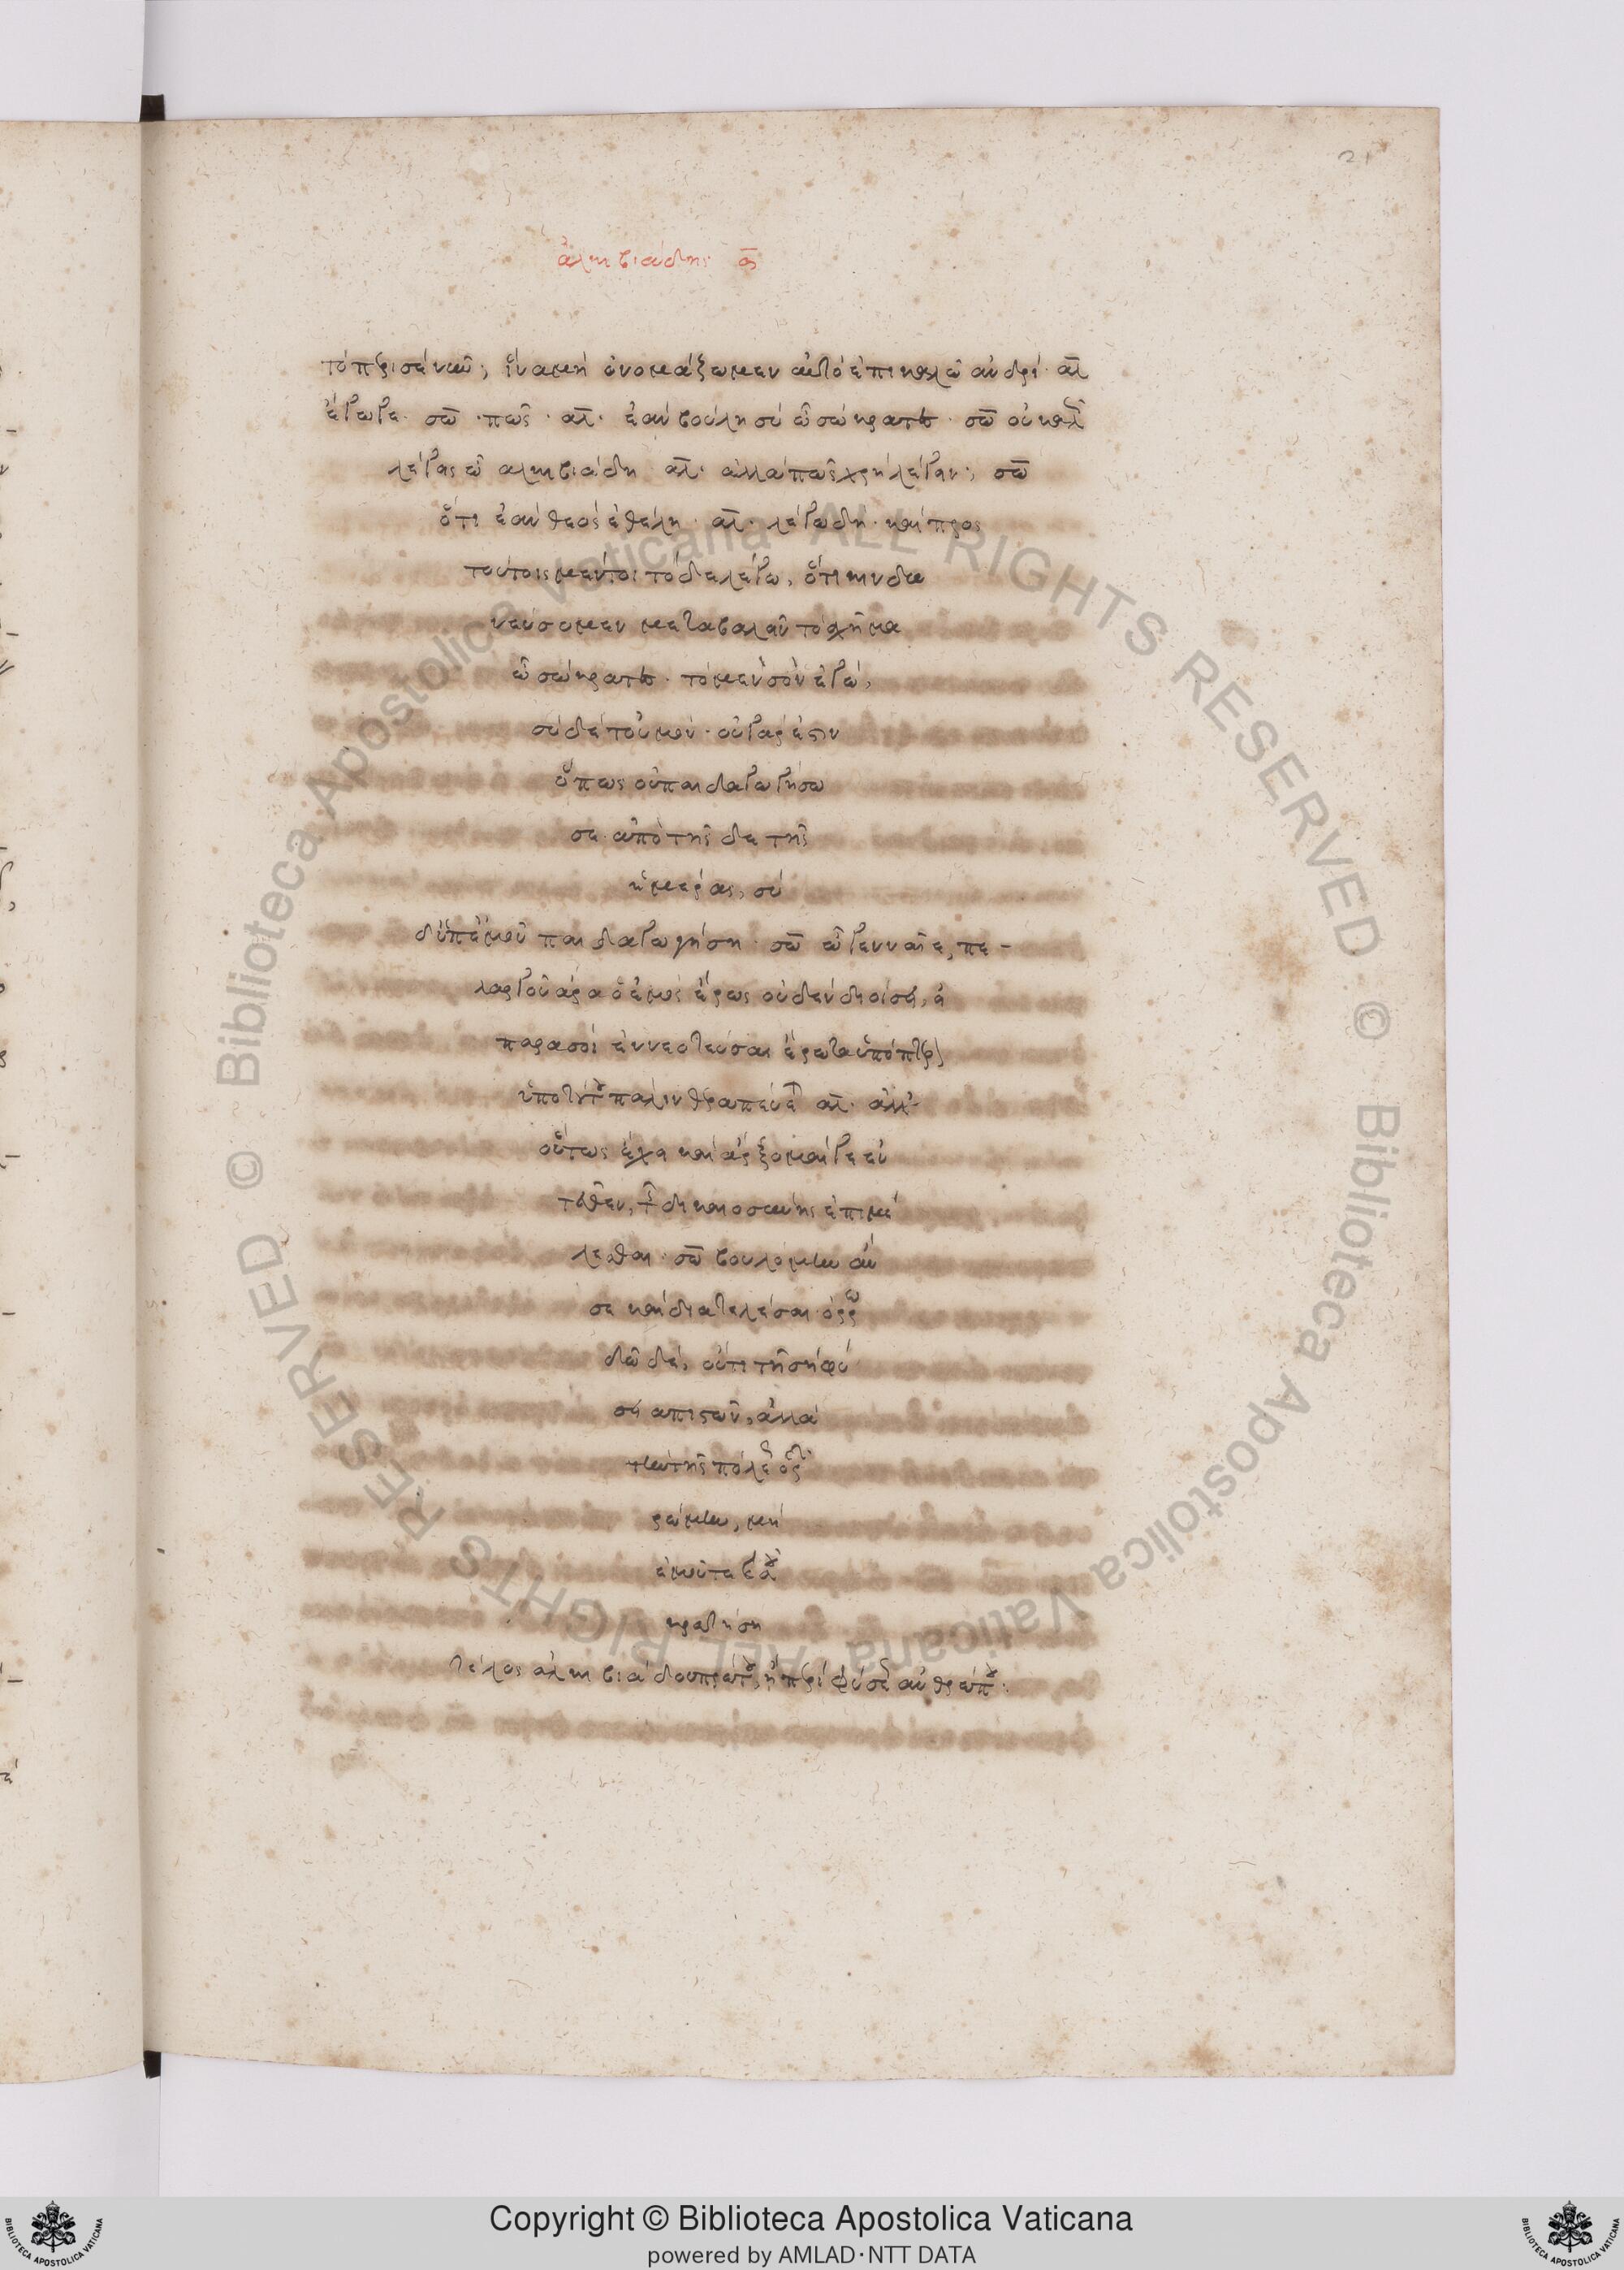 21
ἀλκιβιάδης ᾱ
τὸ περὶ σὲ νῦν; ἵνα μὴ ὀνομάζωμεν αὐτὸ ἐπὶ καλῶ ἀνδρί· αλ
ἔγωγε· σω· πῶς· αλ· ἐὰν βούλη σὺ ὦ σώκρατες· σω οὐ καλῶς
λέγεις ὦ αλκιβιάδη αλ· ἀλλὰ πῶς χρὴ λέγειν; σω
ὅτι ἐὰν θεὸς ἐθέλη· αλ· λέγω δὴ· καὶ πρὸς
τούτοις μέντοι τόδε λέγω, ὅτι κινδυ
νεύσομεν μεταβαλεῖν τὸ σχῆμα
ὦ σώκρατες· τὸ μὲν σὸν ἐγώ,
σὺ δὲ τοὐμόν· οὐ γάρ ἐστιν
ὅπως οὐ παιδαγωγήσω
σε ἀπὸ τῆσδε τῆς
ἡμέρας, σὺ
δ' ὑπ' ἐμοῦ παιδαγωγήση· σω ὦ γενναῖε, πε-
λαργοῦ ἄρα ὁ ἐμὸς ἔρως οὐδὲν διοίσει, εἰ
παρὰ σοὶ ἐννεοτεύσας ἔρωτα ὑπόπτερ
ὑπὸ τούτου πάλιν θεραπεύσεται αλ· ἀλλ'
οὕτως ἔχει καὶ ἄρξομαί γε ἐν
τεῦθεν, τῆς δικαιοσύνης ἐπιμέ
λεσθαι· σω βουλοίμην ἄν
σε καὶ διατελέσαι· ὀρρω
δῶ δέ, οὔτι τῆ σῆ φύ
σει ἀπιστῶν, ἀλλὰ
τὴν τῆς πόλεως ὁ
ρῶ ῥώμην, μὴ
ἐμοῦ τε καὶ σοῦ
κρατήση
τέλος ἀλκιβιάδου πρώτου, ἢ περὶ φύσεως ἀνθρώπου·
Copyright © Biblioteca Apostolica Vaticana
powered by AMLAD·NTT DATA
© Biblioteca Apostolica Vaticana ALL RIGHTS RESERVED © Biblioteca Apostolica Vaticana ALL RIGHTS RESERVED
BIBLIOTECA APOSTOLICA VATICANA
BIBLIOTECA APOSTOLICA VATICANA